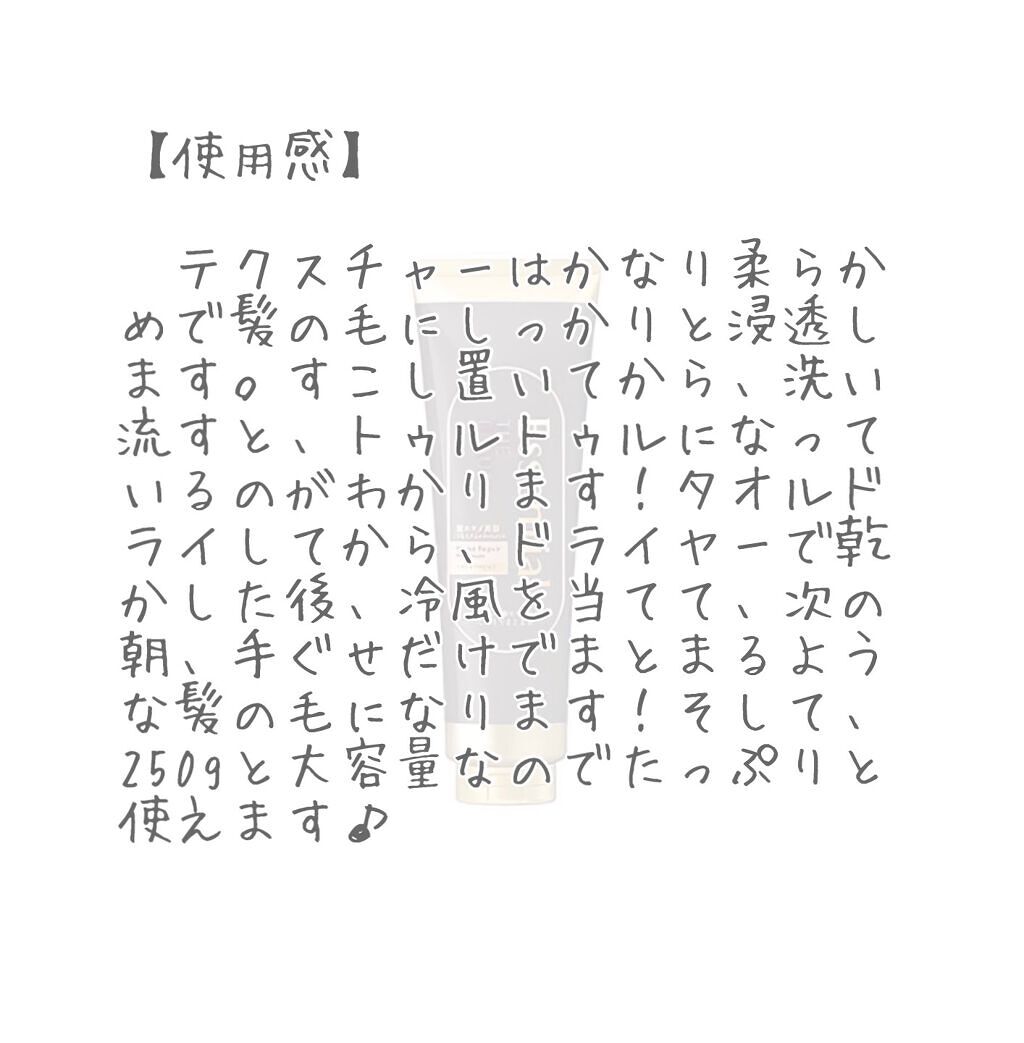 【使用感】
テクスチャーはかなり柔らか
めで髪の毛にしっかりと浸透し
ます。すこし置いてから、洗い
流すと、トゥルトゥルになって
いるのがわかります!タオルド
ライしてから、ドライヤーで乾
かした後、冷風を当てて、次の
朝、手ぐせだけでまとまるよう
な髪の毛になります!そして、
250gと大容量なのでたっぷりと
使えます♪
Essential
THE